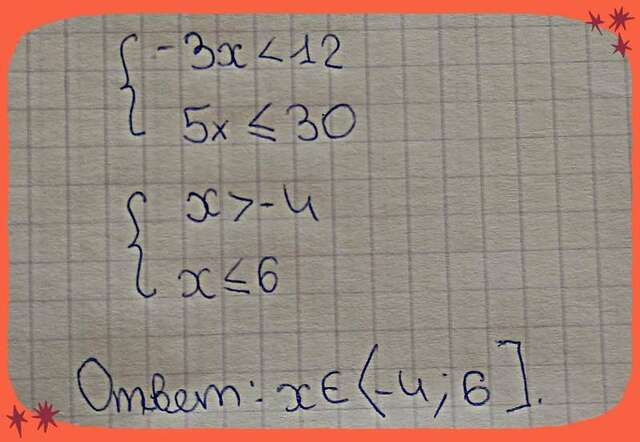 -3x<12
5x≤30
x>-4
x≤6
Ответ: x∈(-4;6].